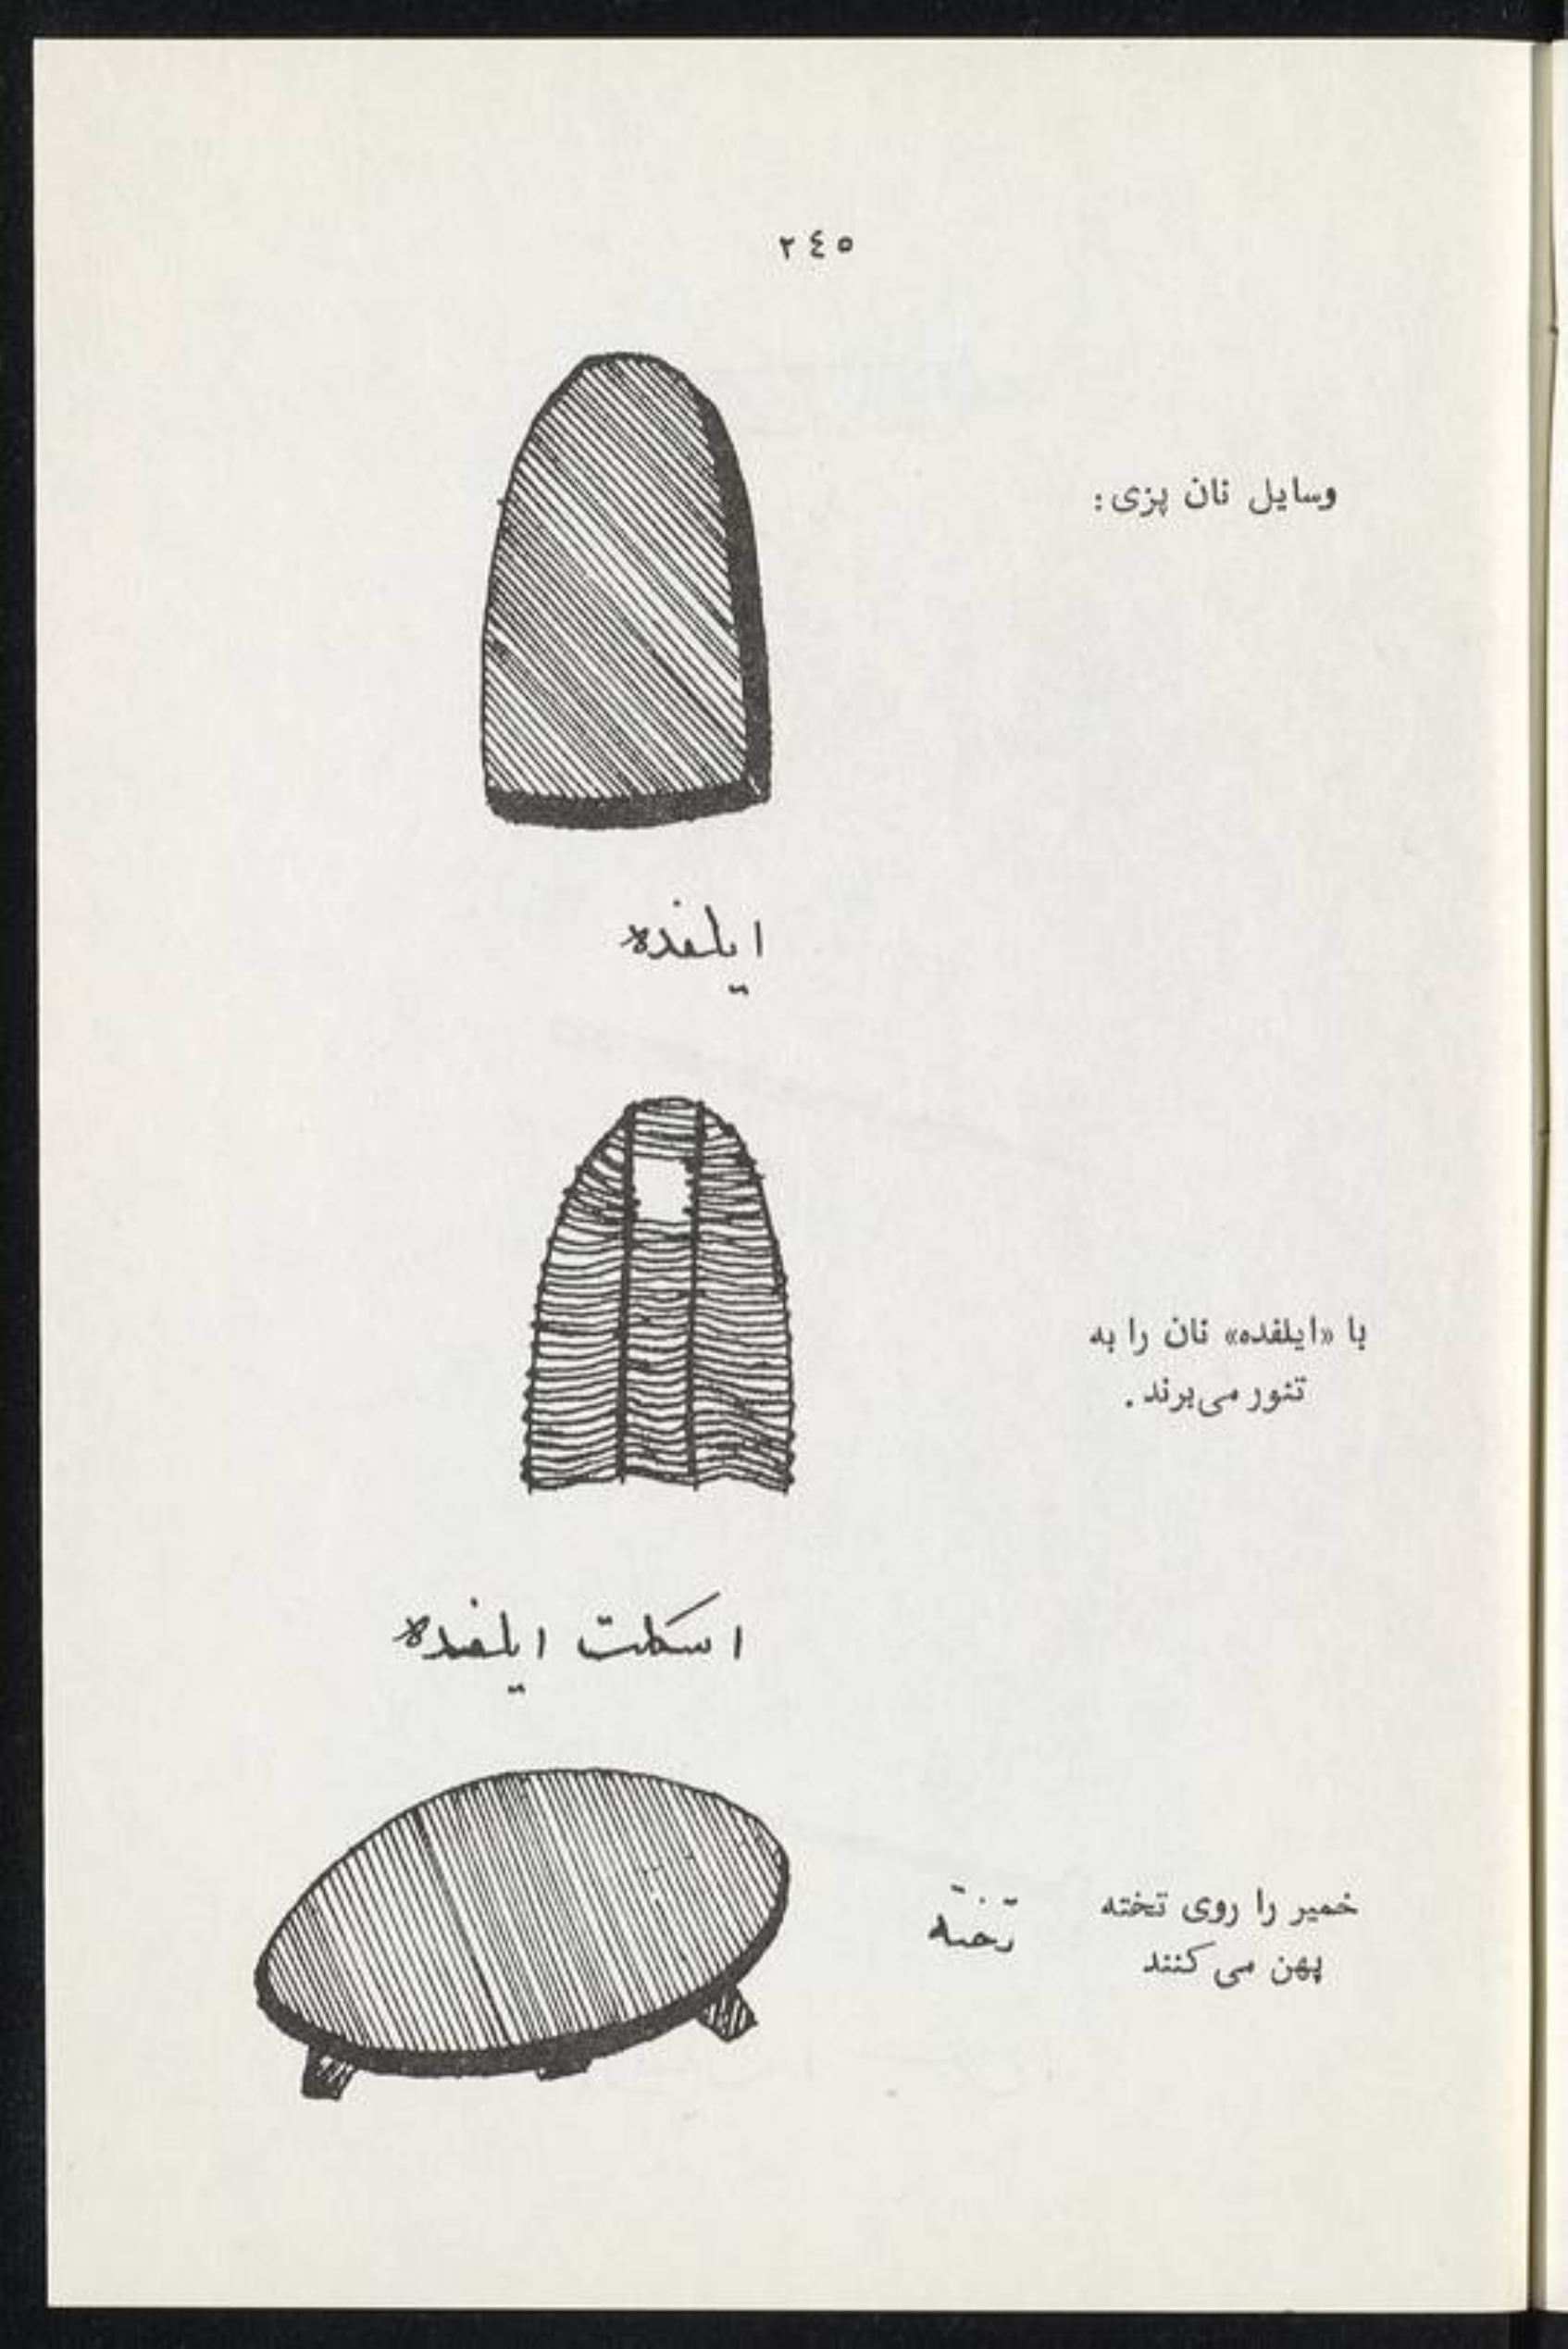 ٢٤٥
وسایل نان پزی :
ایلفده
با «ایلفده» نان را به
تنور می‌برند .
اسکلت ایلفده
خمیر را روی تخته
پهن می‌کنند
تخته